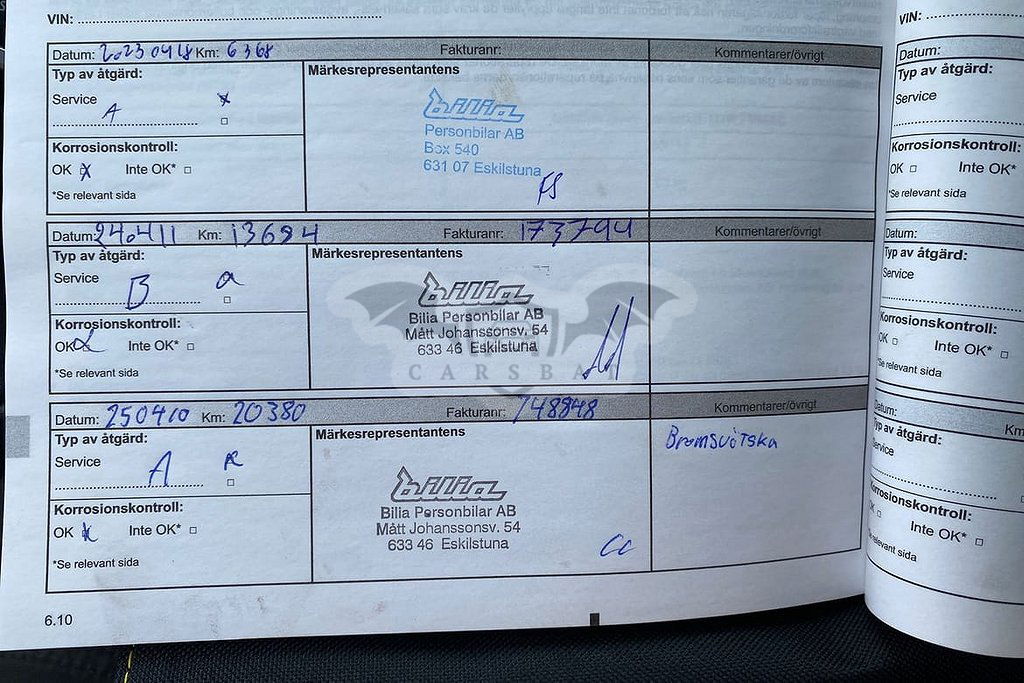 VIN:
Datum: 20230418 Km: 6368 Fakturanr: Kommentarer/övrigt
Typ av åtgärd: Märkesrepresentantens
Service A x
bilia
Personbilar AB
Box 540
631 07 Eskilstuna
Korrosionskontroll:
OK x Inte OK*
*Se relevant sida
FS
Datum: 240411 Km: 13694 Fakturanr: 173794 Kommentarer/övrigt
Typ av åtgärd: Märkesrepresentantens
Service B
bilia
Bilia Personbilar AB
Mått Johanssonsv. 54
633 46 Eskilstuna
CARSBAT
Korrosionskontroll:
OK Inte OK*
*Se relevant sida
Datum: 250410 Km: 20380 Fakturanr: 748848 Kommentarer/övrigt
Typ av åtgärd: Märkesrepresentantens Bromsvätska
Service A
bilia
Bilia Personbilar AB
Mått Johanssonsv. 54
633 46 Eskilstuna
CC
Korrosionskontroll:
OK x Inte OK*
*Se relevant sida
6.10
VIN:
Datum:
Typ av åtgärd:
Service
Korrosionskontroll:
OK Inte OK*
*Se relevant sida
Datum:
Typ av åtgärd:
Service
Korrosionskontroll:
OK Inte OK*
*Se relevant sida
Datum: Km
Typ av åtgärd:
Service
Korrosionskontroll:
OK Inte OK*
*Se relevant sida